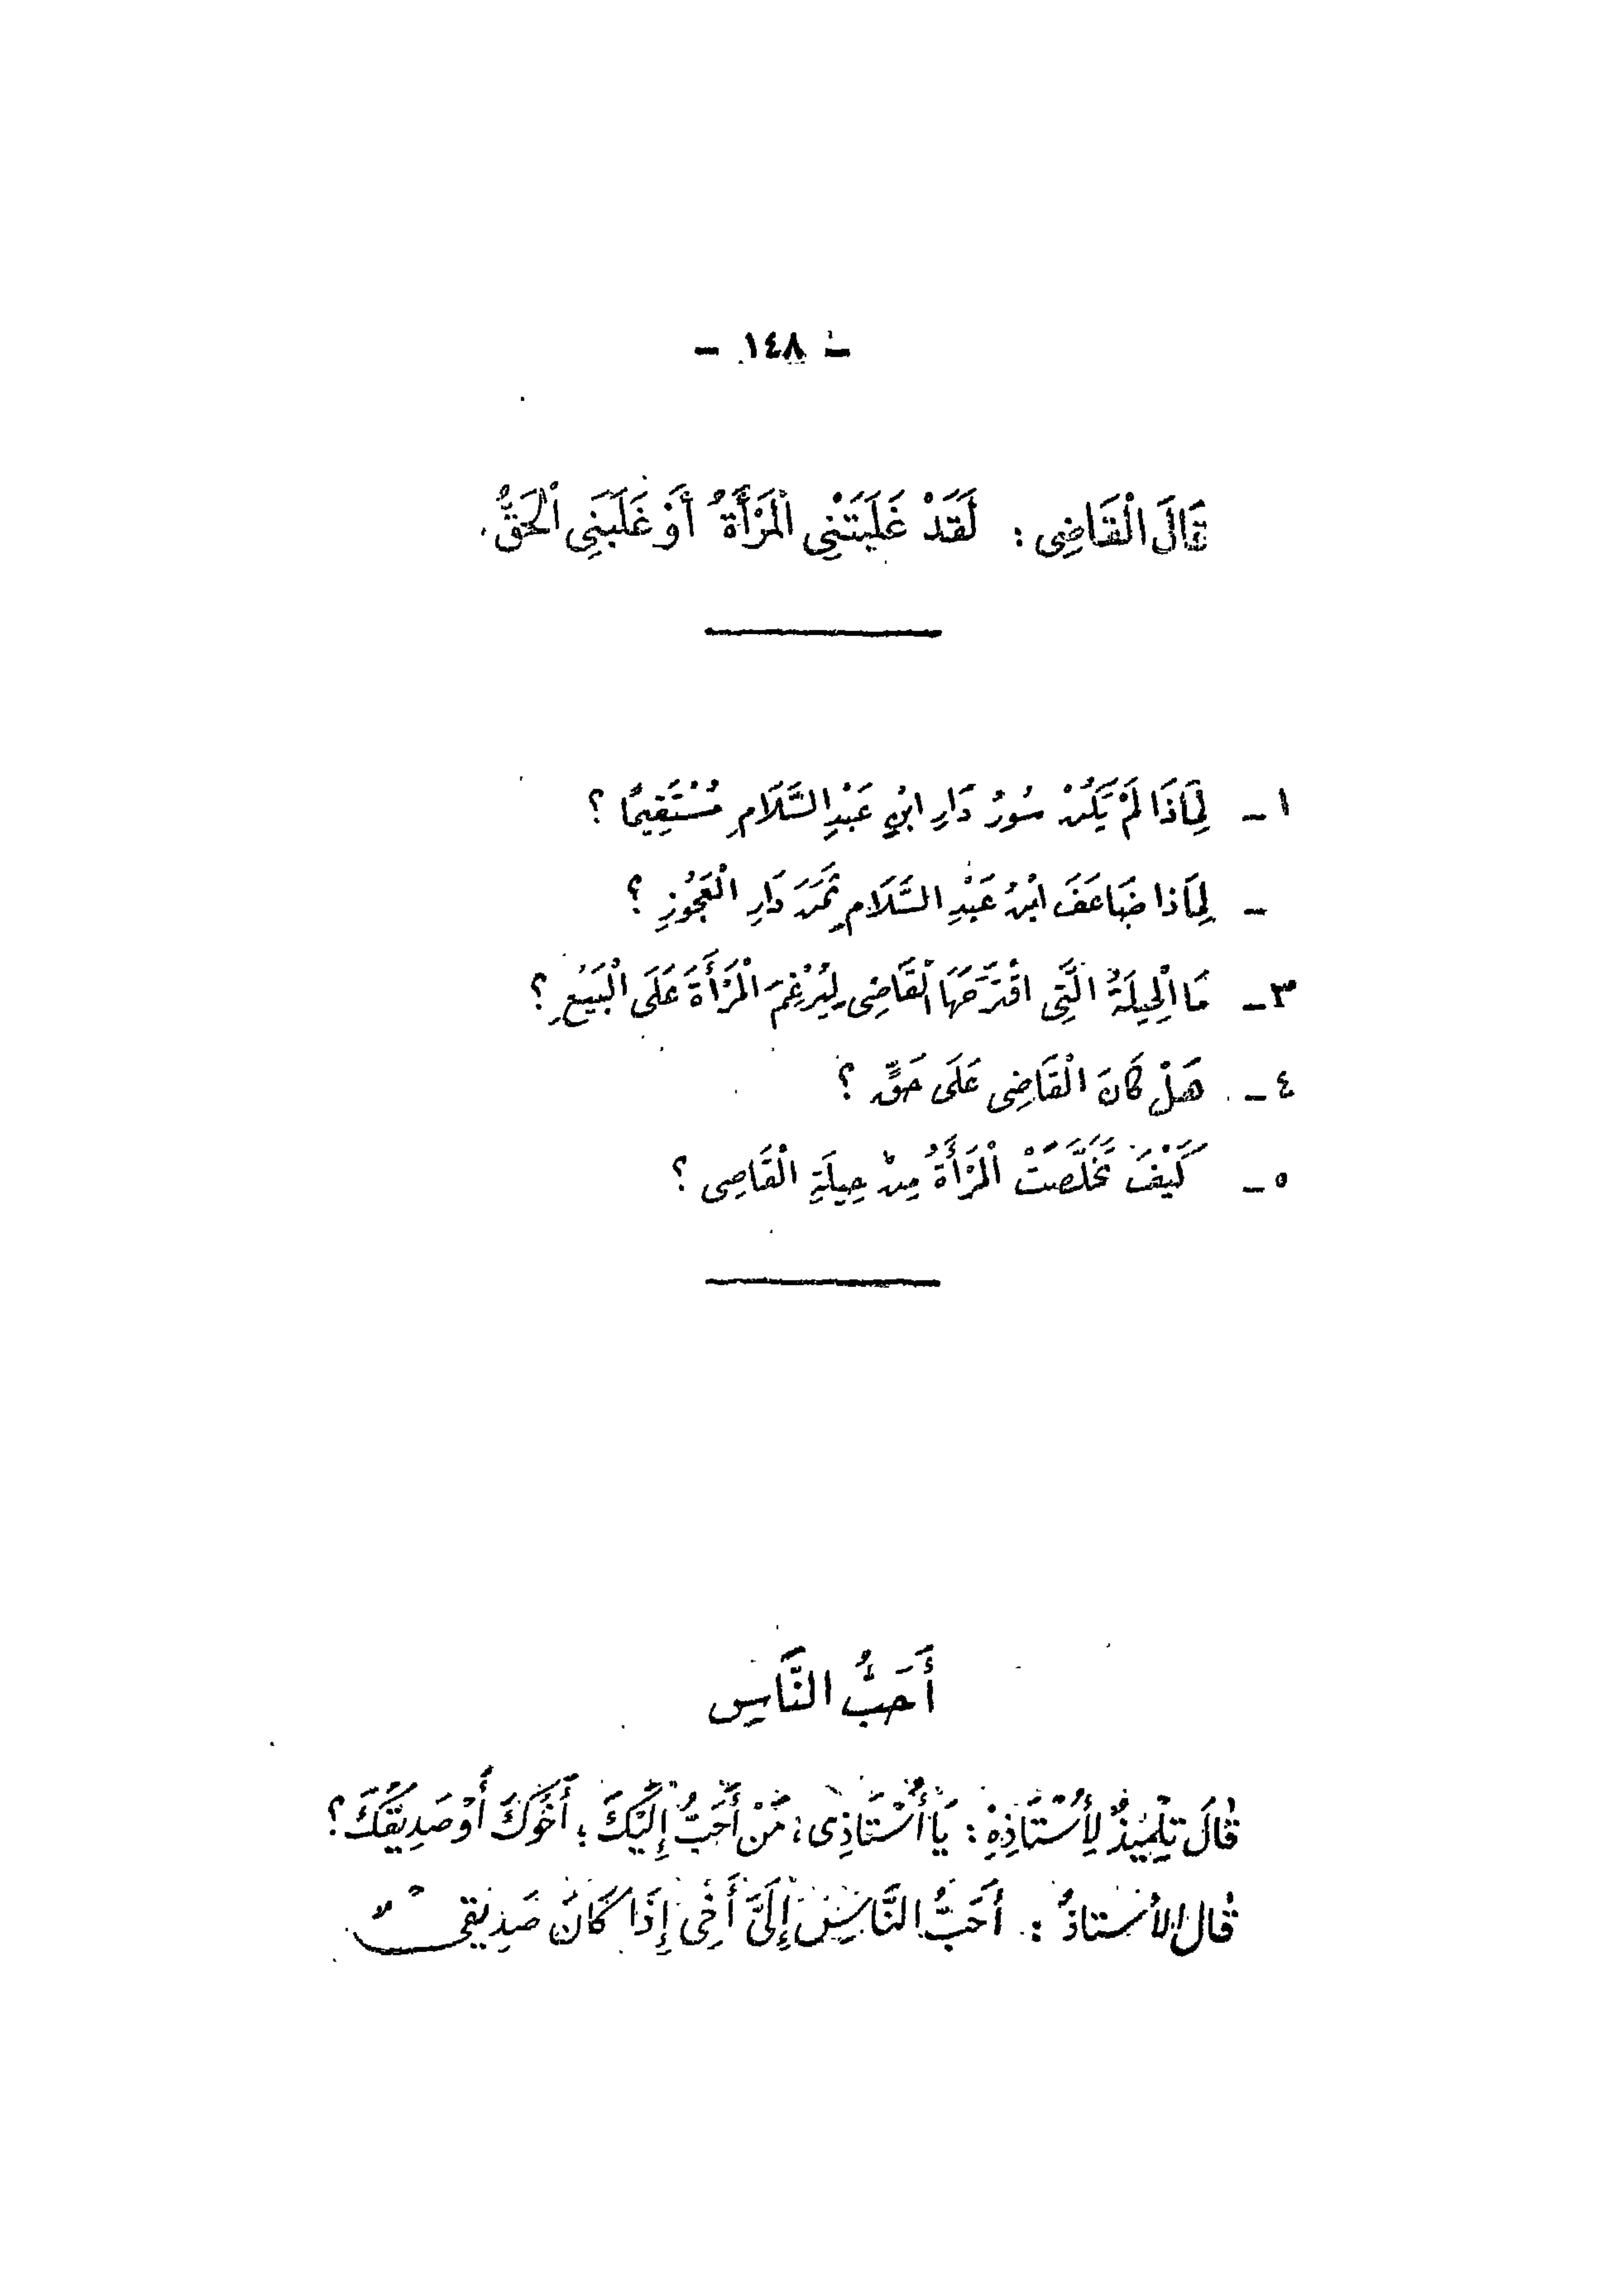 - ١٤٨ -
قَالَ الْقَاضِى : لَقَدْ غَلَبَتْنِى الْمَرْأَةُ أَوْ غَلَبَنِى الْحَقُّ.
١ - لِمَاذَا لَمْ يَكُنْ سُورُ دَارِ ابْنِ عَبْدِ السَّلَامِ مُسْتَقِيمًا ؟
- لِمَاذا ضَاعَفَ ابْنُ عَبْدِ السَّلَامِ ثَمَنَ دَارِ الْعَجُوزِ ؟
٣ - مَا الْحِيلَةُ الَّتِى اقْتَرَحَهَا الْقَاضِى لِيُرْغِمَ الْمَرْأَةَ عَلَى الْبَيْعِ ؟
٤ - هَلْ كَانَ الْقَاضِى عَلَى حَقٍّ ؟
٥ - كَيْفَ تَخَلَّصَتْ الْمَرْأَةُ مِنْ حِيلَةِ الْقَاضِى ؟
أَحَبُّ النَّاسِ
قَالَ تِلْمِيذٌ لِأُسْتَاذِهِ : يَا أُسْتَاذِى ؛ مَنْ أَحَبُّ إِلَيْكَ ؛ أَخُوكَ أَوْ صَدِيقُكَ ؟
قال الأستاذُ : أَحَبُّ النَّاسِ إِلَىَّ أَخِى إِذَا كَانَ صَدِيقِى